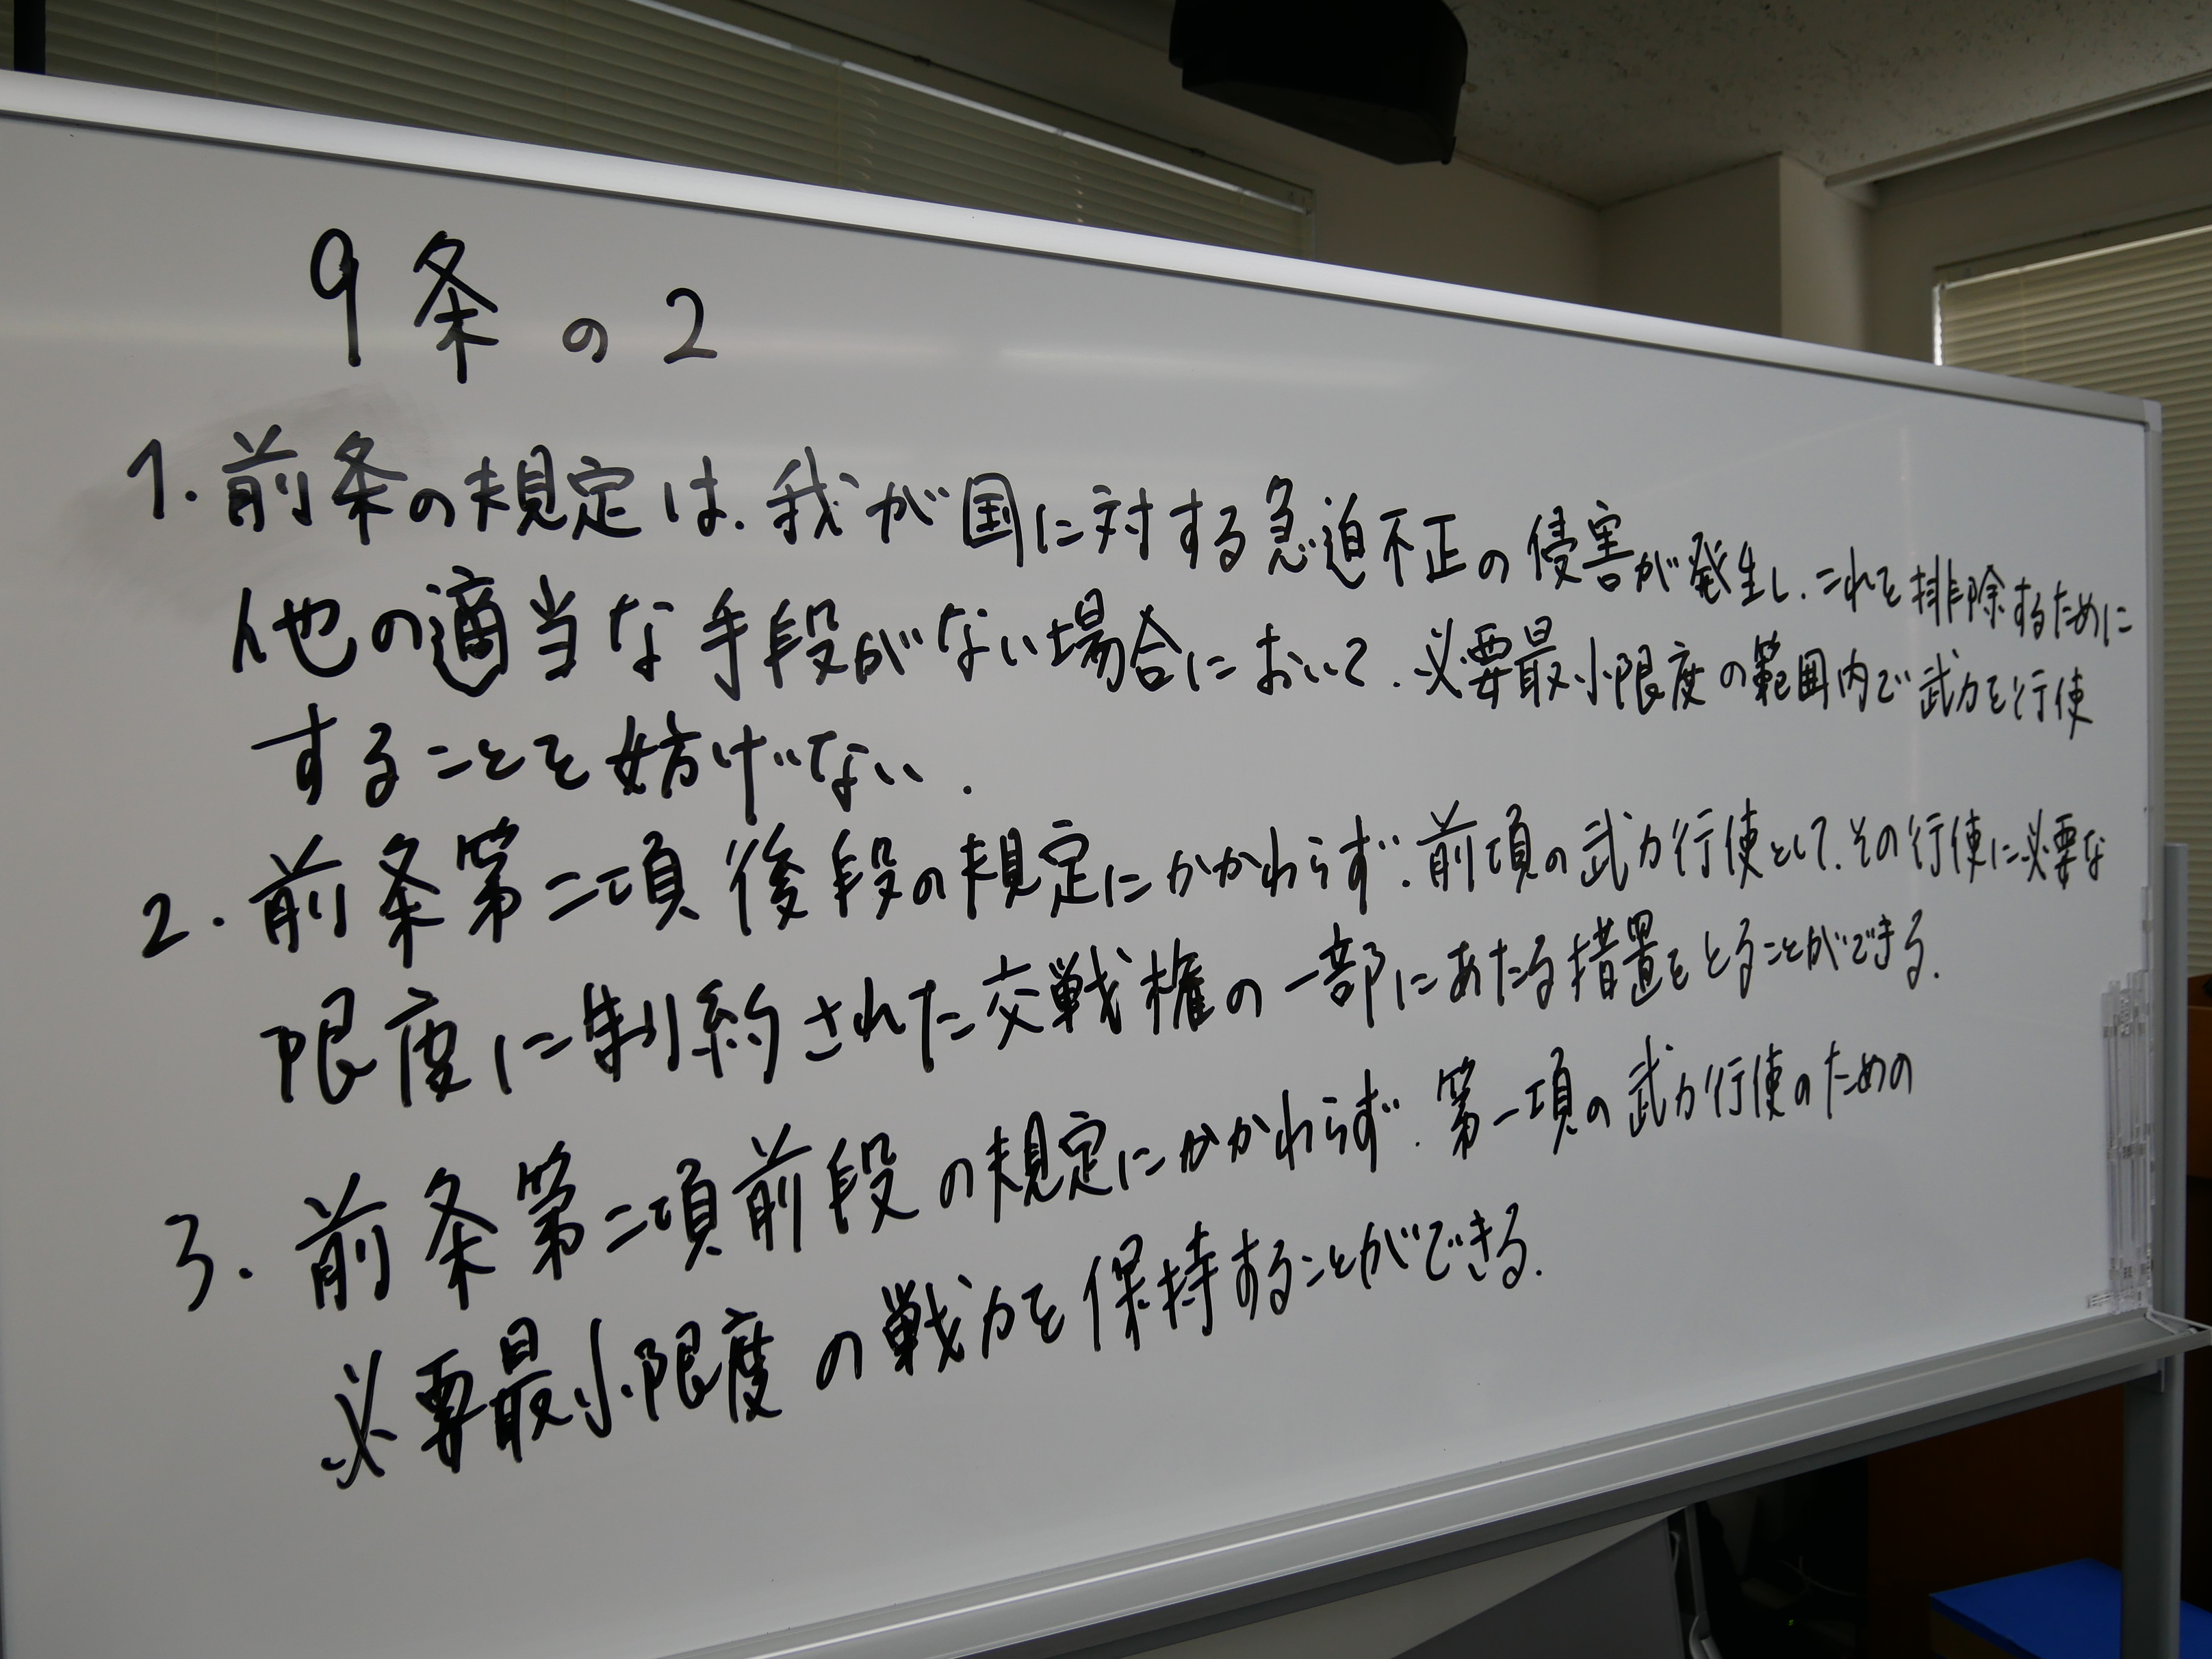 9条の2
1. 前条の規定は、我が国に対する急迫不正の侵害が発生し、これを排除するために
他の適当な手段がない場合において、必要最小限度の範囲内で武力を行使
することを妨げない.
2. 前条第二項後段の規定にかかわらず、前項の武力行使として、その行使に必要な
限度に制約された交戦権の一部にあたる措置をとることができる.
3. 前条第二項前段の規定にかかわらず、第一項の武力行使のための
必要最小限度の戦力を保持することができる.